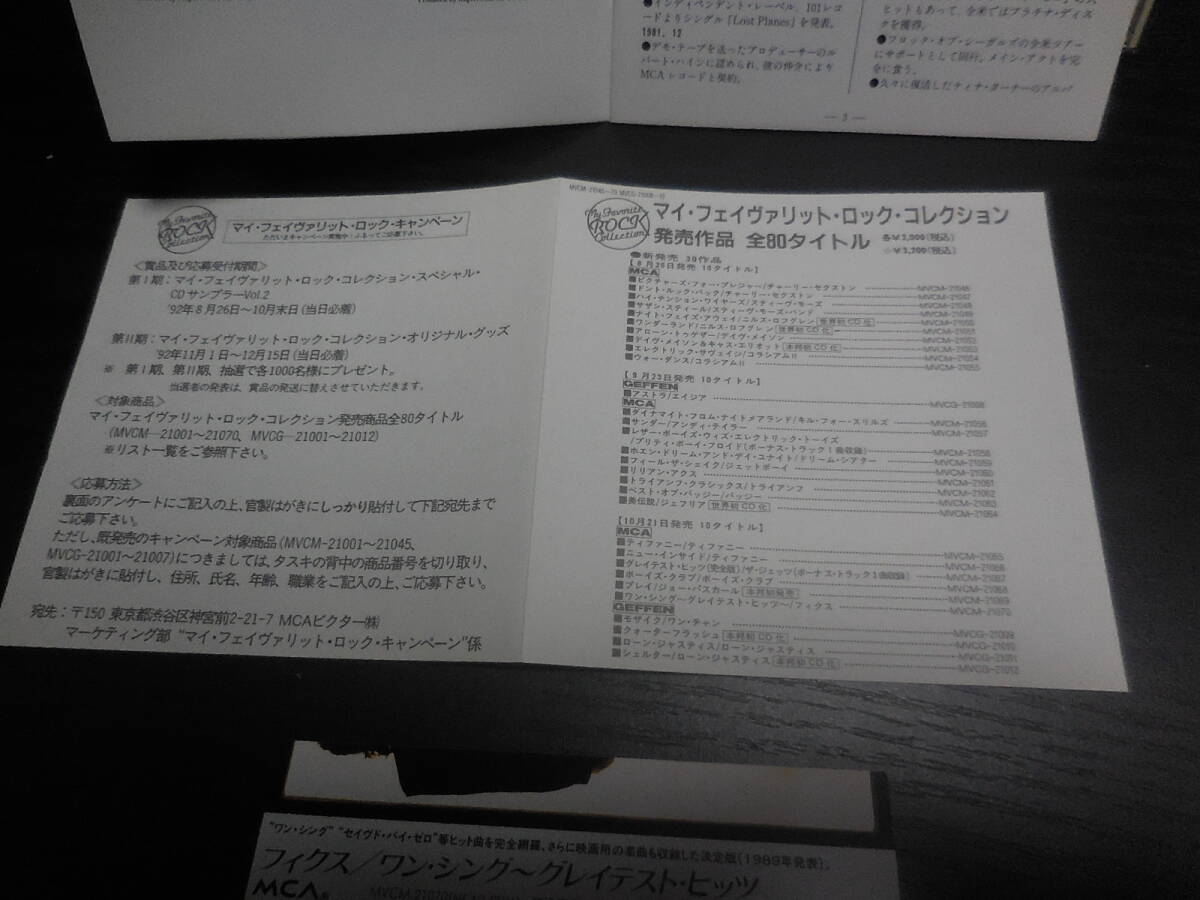 ●インディペンデント・レーベル、101レコ
ードよりシングル「Lost Planes」を発表。
1981. 12
●デモ・テープを送ったプロデューサーのル
パート・ハインに認められ、彼の仲介により
MCAレコードと契約。
ヒットもあって、全米ではプラチナ・ディス
クを獲得。
●フロック・オブ・シーガルズの全米ツアー
にサポートとして同行。メイン・アクトを完
全に食う。
●久々に復活したティナ・ターナーのアルバ
— 3 —
My Favorite ROCK Collection
マイ・フェイヴァリット・ロック・キャンペーン
ただいまキャンペーン実施中!ふるってご応募下さい。
〈賞品及び応募受付期間〉
第Ⅰ期:マイ・フェイヴァリット・ロック・コレクション・スペシャル・
CDサンプラーVol.2
'92年8月26日〜10月末日(当日必着)
第Ⅱ期:マイ・フェイヴァリット・ロック・コレクション・オリジナル・グッズ
'92年11月1日〜12月15日(当日必着)
※ 第Ⅰ期、第Ⅱ期、抽選で各1000名様にプレゼント。
当選者の発表は、賞品の発送に替えさせていただきます。
〈対象商品〉
マイ・フェイヴァリット・ロック・コレクション発売商品全80タイトル
(MVCM—21001〜21070、MVCG—21001〜21012)
※リスト一覧をご参照下さい。
〈応募方法〉
裏面のアンケートにご記入の上、官製はがきにしっかり貼付して下記宛先まで
ご応募下さい。
ただし、既発売のキャンペーン対象商品(MVCM-21001〜21045、
MVCG-21001〜21007)につきましては、タスキの背中の商品番号を切り取り、
官製はがきに貼付し、住所、氏名、年齢、職業をご記入の上、ご応募下さい。
宛先:〒150 東京都渋谷区神宮前2-21-7 MCAビクター㈱
マーケティング部 "マイ・フェイヴァリット・ロック・キャンペーン"係
My Favorite ROCK Collection
マイ・フェイヴァリット・ロック・コレクション
発売作品 全80タイトル 各¥2,500(税込)
●新発売 30作品
【8月26日発売 10タイトル】
MCA
■ピクチャーズ・フォー・プレジャー/チャーリー・セクストン MVCM-21046
■ドント・ルック・バック/チャーリー・セクストン MVCM-21047
■ハイ・テンション・ワイヤーズ/スティーヴ・モーズ MVCM-21048
■サザン・スティール/スティーヴ・モーズ・バンド MVCM-21049
■ナイト・フェイズ・アウェイ/ニルス・ロフグレン 世界初CD化 MVCM-21050
■ワンダーランド/ニルス・ロフグレン 世界初CD化 MVCM-21051
■アローン・トゥゲザー/デイヴ・メイソン MVCM-21052
■デイヴ・メイソン&キャス・エリオット 本邦初CD化 MVCM-21053
■エレクトリック・サヴェイジ/コラシアムⅡ MVCM-21054
■ウォー・ダンス/コラシアムⅡ MVCM-21055
【9月23日発売 10タイトル】
GEFFEN
■アストラ/エイジア MVCG-21008
MCA
■ダイナマイト・フロム・ナイトメアランド/キル・フォー・スリルズ MVCM-21056
■サンダー/アンディ・テイラー MVCM-21057
■レザー・ボーイズ・ウィズ・エレクトリック・トーイズ
/プリティ・ボーイ・フロイド(ボーナス・トラック1曲収録) MVCM-21058
■ホエン・ドリーム・アンド・デイ・ユナイト/ドリーム・シアター MVCM-21059
■フィール・ザ・シェイク/ジェットボーイ MVCM-21060
■リリアン・アクス MVCM-21061
■トライアンフ・クラシックス/トライアンフ MVCM-21062
■ベスト・オブ・バッジー/バッジー MVCM-21063
■美伝説/ジェフリア 世界初CD化 MVCM-21064
【10月21日発売 10タイトル】
MCA
■ティファニー/ティファニー MVCM-21065
■ニュー・インサイド/ティファニー MVCM-21066
■グレイテスト・ヒッツ(完全版)/ザ・ジェッツ(ボーナス・トラック1曲収録) MVCM-21067
■ボーイズ・クラブ/ボーイズ・クラブ MVCM-21068
■プレイ/ジョー・パスカール 本邦初発売 MVCM-21069
■ワン・シング〜グレイテスト・ヒッツ〜/フィクス MVCM-21070
GEFFEN
■モザイク/ワン・チャン MVCG-21009
■クォーターフラッシュ 本邦初CD化 MVCG-21010
■ローン・ジャスティス/ローン・ジャスティス MVCG-21011
■シェルター/ローン・ジャスティス 本邦初CD化 MVCG-21012
"ワン・シング" "セイヴド・バイ・ゼロ"等ヒット曲を完全網羅、さらに映画用の楽曲も収録した決定版(1989年発表)。
フィクス/ワン・シング〜グレイテスト・ヒッツ
MCA